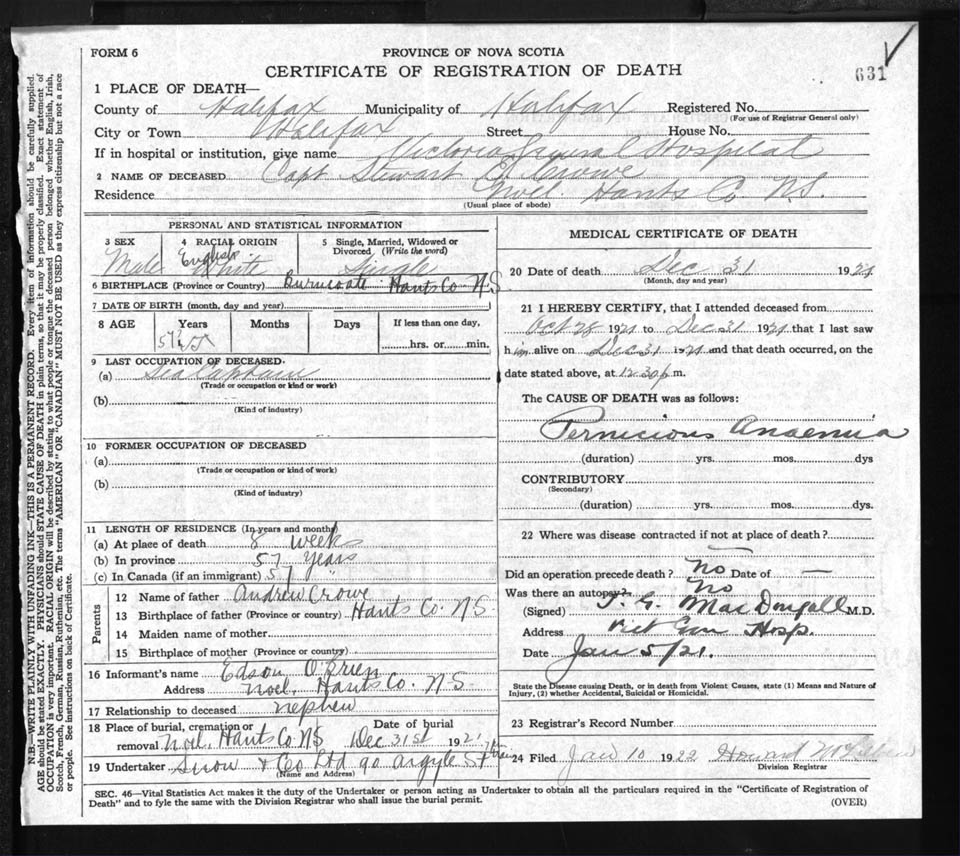 FORM 6
PROVINCE OF NOVA SCOTIA
CERTIFICATE OF REGISTRATION OF DEATH
631
1 PLACE OF DEATH—
County of Halifax Municipality of Halifax Registered No.
(For use of Registrar General only)
City or Town Halifax Street House No.
If in hospital or institution, give name Victoria General Hospital
2 NAME OF DECEASED Capt Stewart
Residence Noel. Hants Co N.S.
(Usual place of abode)
PERSONAL AND STATISTICAL INFORMATION
3 SEX 4 RACIAL ORIGIN 5 Single, Married, Widowed or Divorced (Write the word)
Male English White Single
6 BIRTHPLACE (Province or Country) Burncoate Hants Co N S
7 DATE OF BIRTH (month, day and year)
8 AGE Years Months Days If less than one day,
57 hrs. or min.
9 LAST OCCUPATION OF DECEASED.
(a) Sea Captain
(Trade or occupation or kind or work)
(b)
(Kind of industry)
10 FORMER OCCUPATION OF DECEASED
(a)
(Trade or occupation or kind of work)
(b)
(Kind of industry)
11 LENGTH OF RESIDENCE (In years and months)
(a) At place of death 8 weeks
(b) In province 57 years
(c) In Canada (if an immigrant) 57 "
Parents
12 Name of father Andrew Crowe
13 Birthplace of father (Province or country) Hants Co. N S
14 Maiden name of mother
15 Birthplace of mother (Province or country)
16 Informant's name Edson O'Brien
Address Noel. Hants Co. N S
17 Relationship to deceased nephew
18 Place of burial, cremation or removal Noel, Hants Co N S Date of burial Dec 31st 1921
19 Undertaker Snow & Co Ltd 90 Argyle St
(Name and Address)
MEDICAL CERTIFICATE OF DEATH
20 Date of death Dec 31 1921
(Month, day and year)
21 I HEREBY CERTIFY, that I attended deceased from
Oct 28 1921 to Dec 31 1921 that I last saw
him alive on Dec 31 1921 and that death occurred, on the
date stated above, at 12.30 p m.
The CAUSE OF DEATH was as follows:
Pernicious Anaemia
(duration) yrs. mos. dys
CONTRIBUTORY
(Secondary)
(duration) yrs. mos. dys.
22 Where was disease contracted if not at place of death?
Did an operation precede death? No Date of —
Was there an autopsy? No
(Signed) MacDougall M.D.
Address Vict Gen Hosp.
Date Jan 5/21.
State the Disease causing Death, or in death from Violent Causes, state (1) Means and Nature of
Injury, (2) whether Accidental, Suicidal or Homicidal.
23 Registrar's Record Number
24 Filed Jan 10 1922 Howard
Division Registrar
SEC. 46—Vital Statistics Act makes it the duty of the Undertaker or person acting as Undertaker to obtain all the particulars required in the "Certificate of Registration of
Death" and to fyle the same with the Division Registrar who shall issue the burial permit.
(OVER)
N.B.—WRITE PLAINLY WITH UNFADING INK—THIS IS A PERMANENT RECORD. Every item of information should be carefully supplied.
AGE should be stated EXACTLY. PHYSICIANS should STATE CAUSE OF DEATH in plain terms, so that it may be properly classified. Exact statement of
OCCUPATION is very important. RACIAL ORIGIN will be described by stating to what people or tongue the deceased person belonged whether English, Irish,
Scotch, French, German, Russian, Ruthenian, etc. The terms "AMERICAN" OR "CANADIAN" MUST NOT BE USED as they express citizenship but not a race
or people. See instructions on back of Certificate.